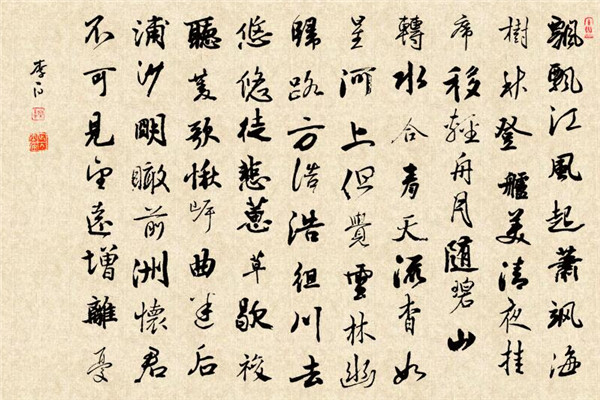 飄飄江風起蕭颯海
樹秋登艫美清夜挂
席移輕舟月隨碧山
轉水合青天流杳如
星河上但覺雲林幽
歸路方浩浩徂川去
悠悠徒悲蕙草歇復
聽菱歌愁岸曲迷后
浦沙明瞰前洲懷君
不可見望遠增離憂
李白